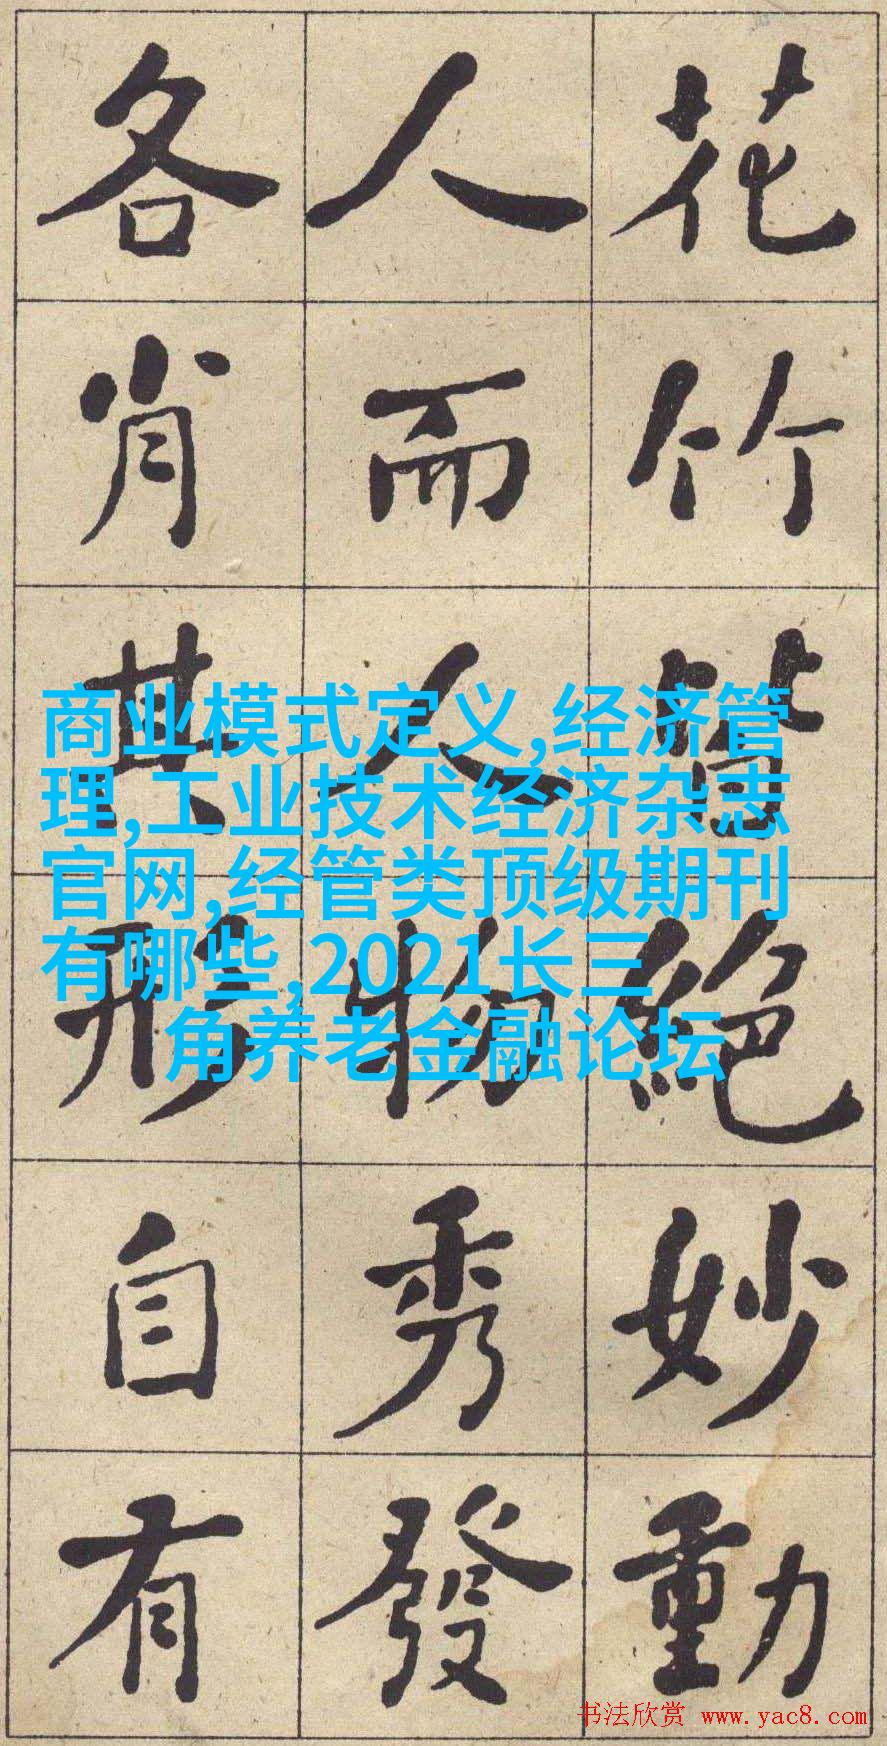 花竹皆絕妙動
人而人物秀發
各肖其形自有
商业模式定义,经济管
理,工业技术经济杂志
官网,经管类顶级期刊
有哪些,2021长三
角养老金融论坛
书法欣赏 www.yac8.com